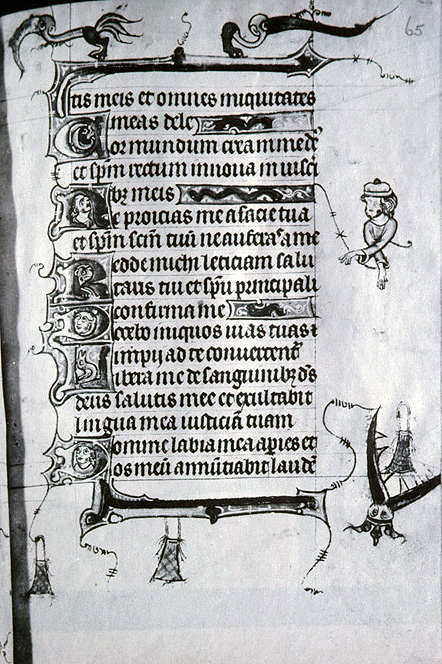 65
tis meis et omnes iniquitates
meas dele
Cor mundum crea in me de
et spm rectum innoua in uisce
bz meis
Ne proicias me a facie tua
et spm scm tuu ne auferas a me
Redde michi leticiam salu
taris tui et spu principali
confirma me
Docebo iniquos uias tuas i
impij ad te conuertent
Libera me de sanguinibz ds
deus salutis mee et exultabit
lingua mea iusticia tuam
Domine labia mea apies et
os meu annutiabit laude